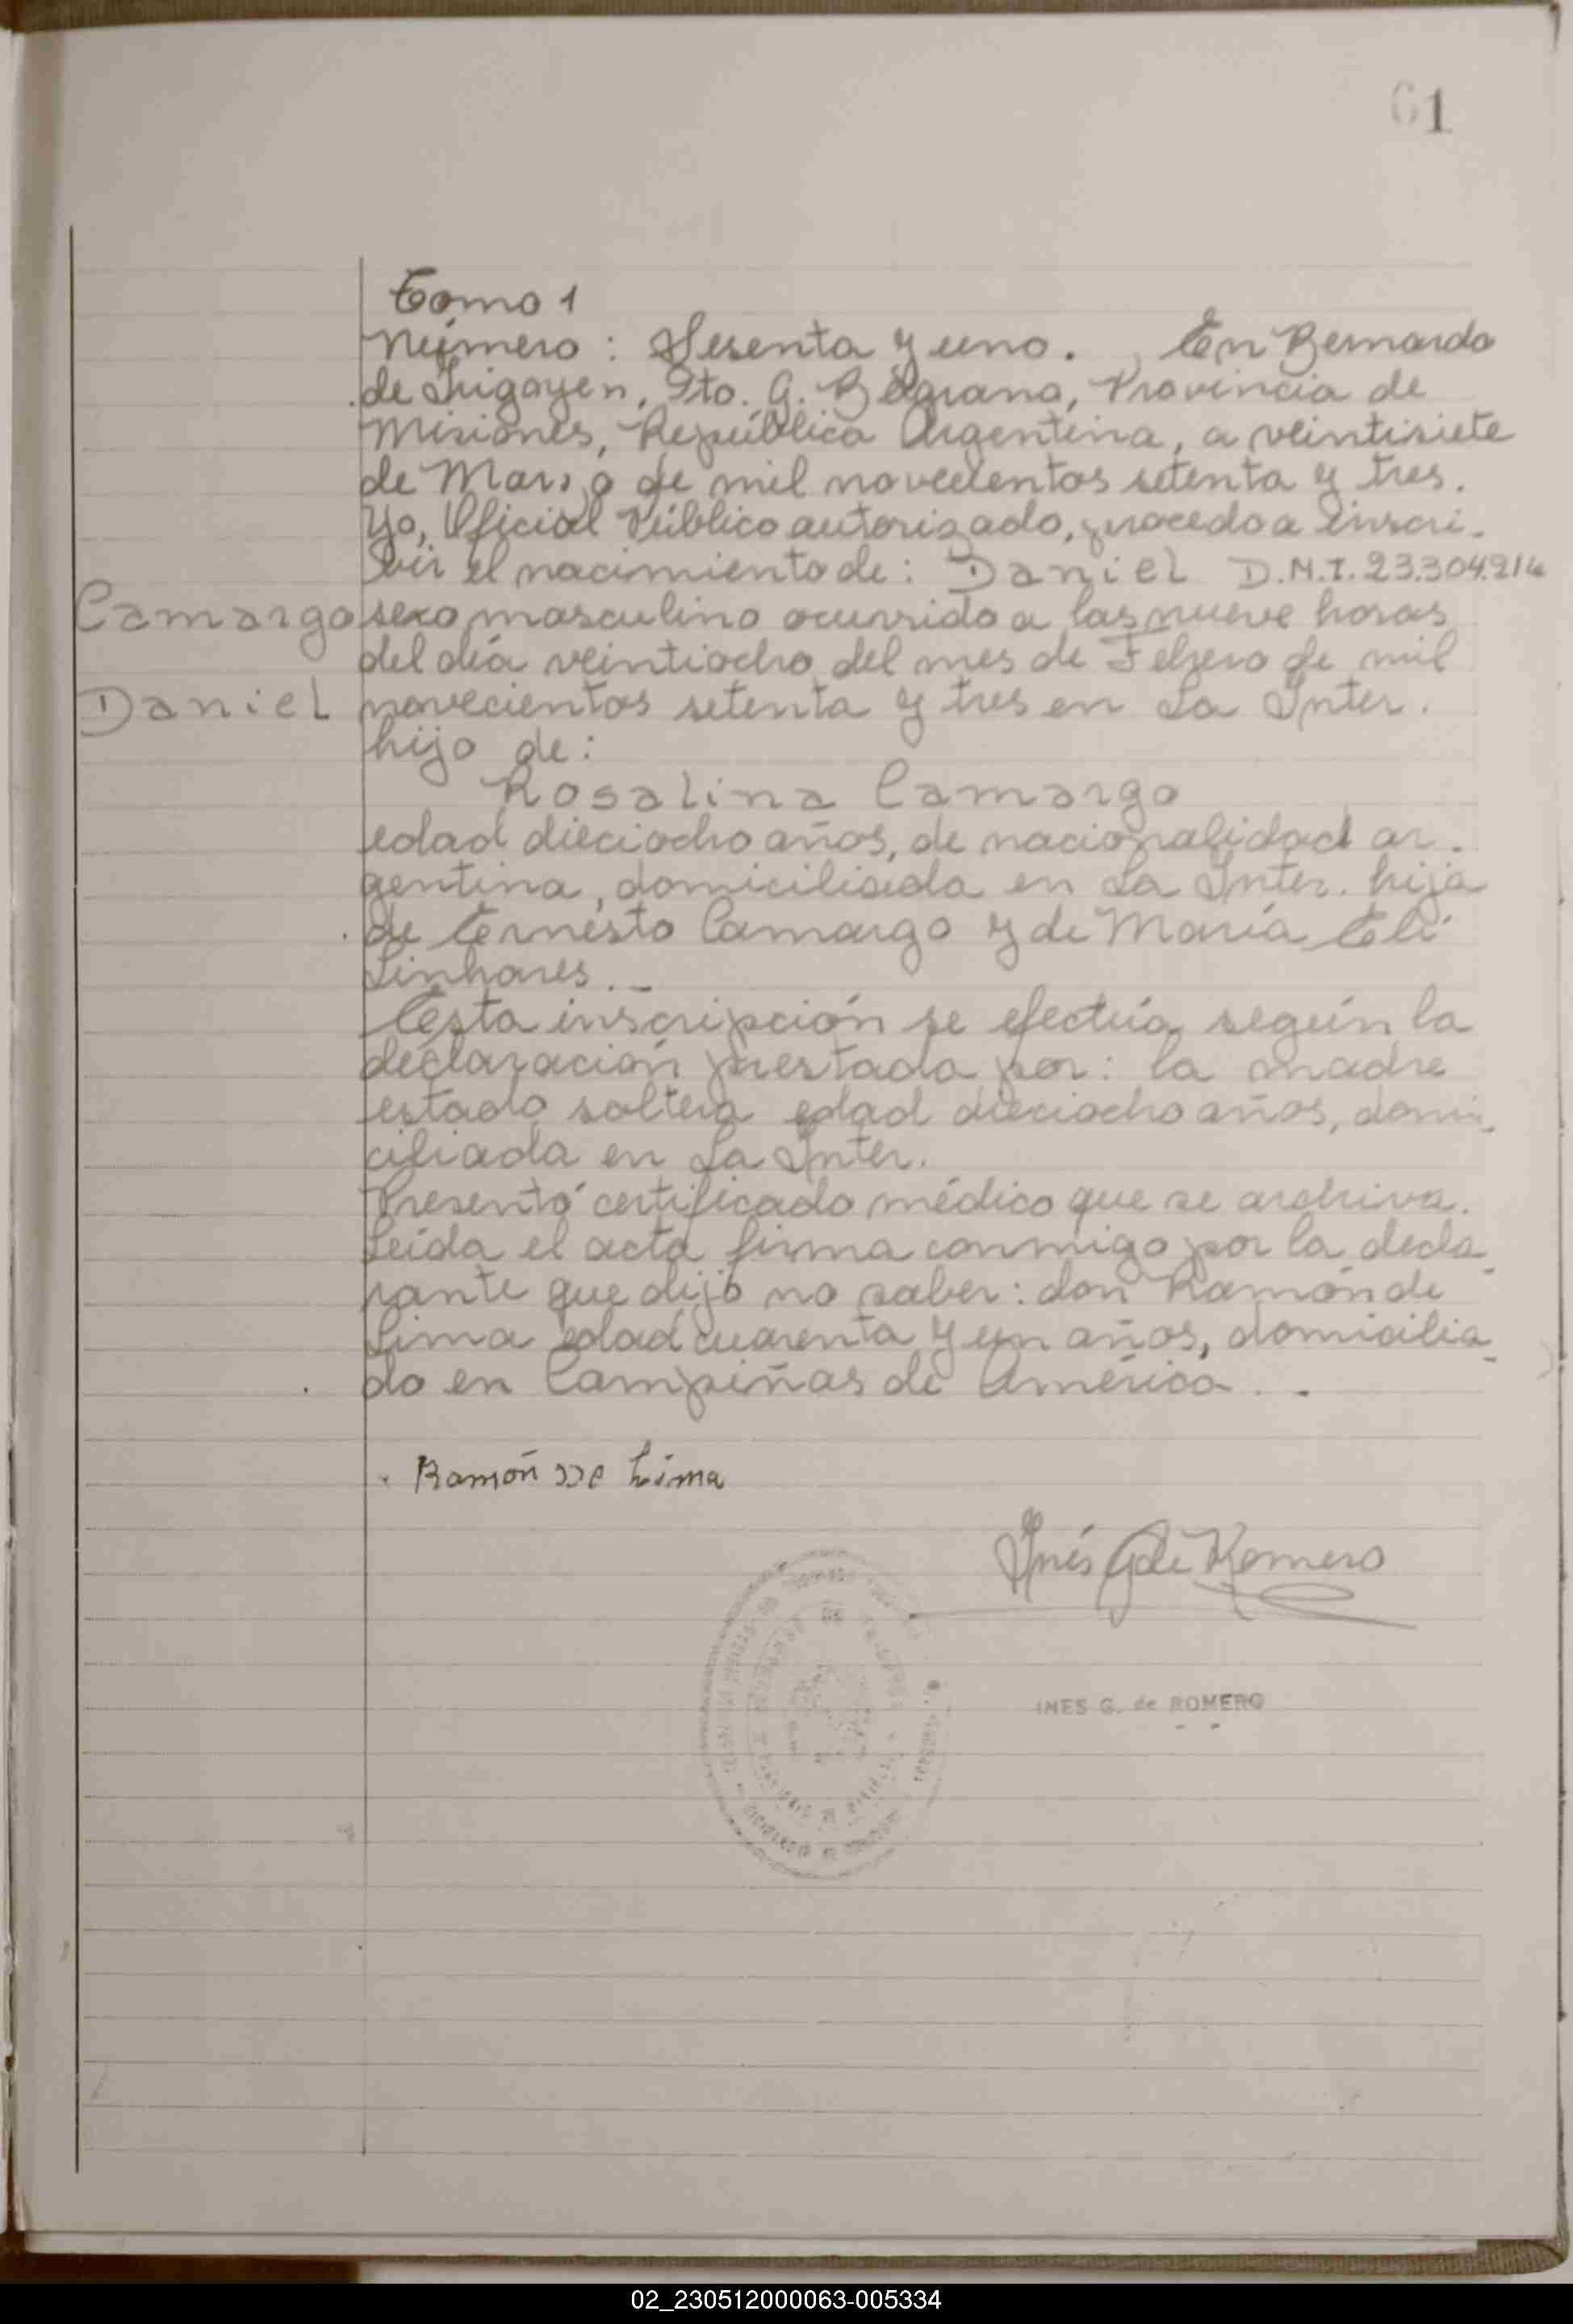 61
Tomo 1
Número: Sesenta y uno. En Bernardo
de Irigoyen, Dto. G. Belgrano, Provincia de
Misiones, República Argentina, a veintisiete
de Marzo de mil novecientos setenta y tres.
Yo, Oficial Público autorizado, procedo a inscri-
bir el nacimiento de: Daniel D.N.I. 23.304.214
Camargo sexo masculino ocurrido a las nueve horas
del día veintiocho del mes de Febrero de mil
Daniel novecientos setenta y tres en La Inter.
hijo de:
Rosalina Camargo
edad dieciocho años, de nacionalidad ar-
gentina, domiciliada en La Inter. hija
de Ernesto Camargo y de María Eli
Linhares.-
Esta inscripción se efectúa según la
declaración prestada por: la madre
estado soltera edad dieciocho años, domi-
ciliada en La Inter.
Presentó certificado médico que se archiva.
Leída el acta firma conmigo por la decla-
rante que dijo no saber: don Ramón de
Lima edad cuarenta y un años, domicilia-
do en Campiñas de América.-
Ramón de Lima
Inés G de Romero
INES G. de ROMERO
02_230512000063-005334